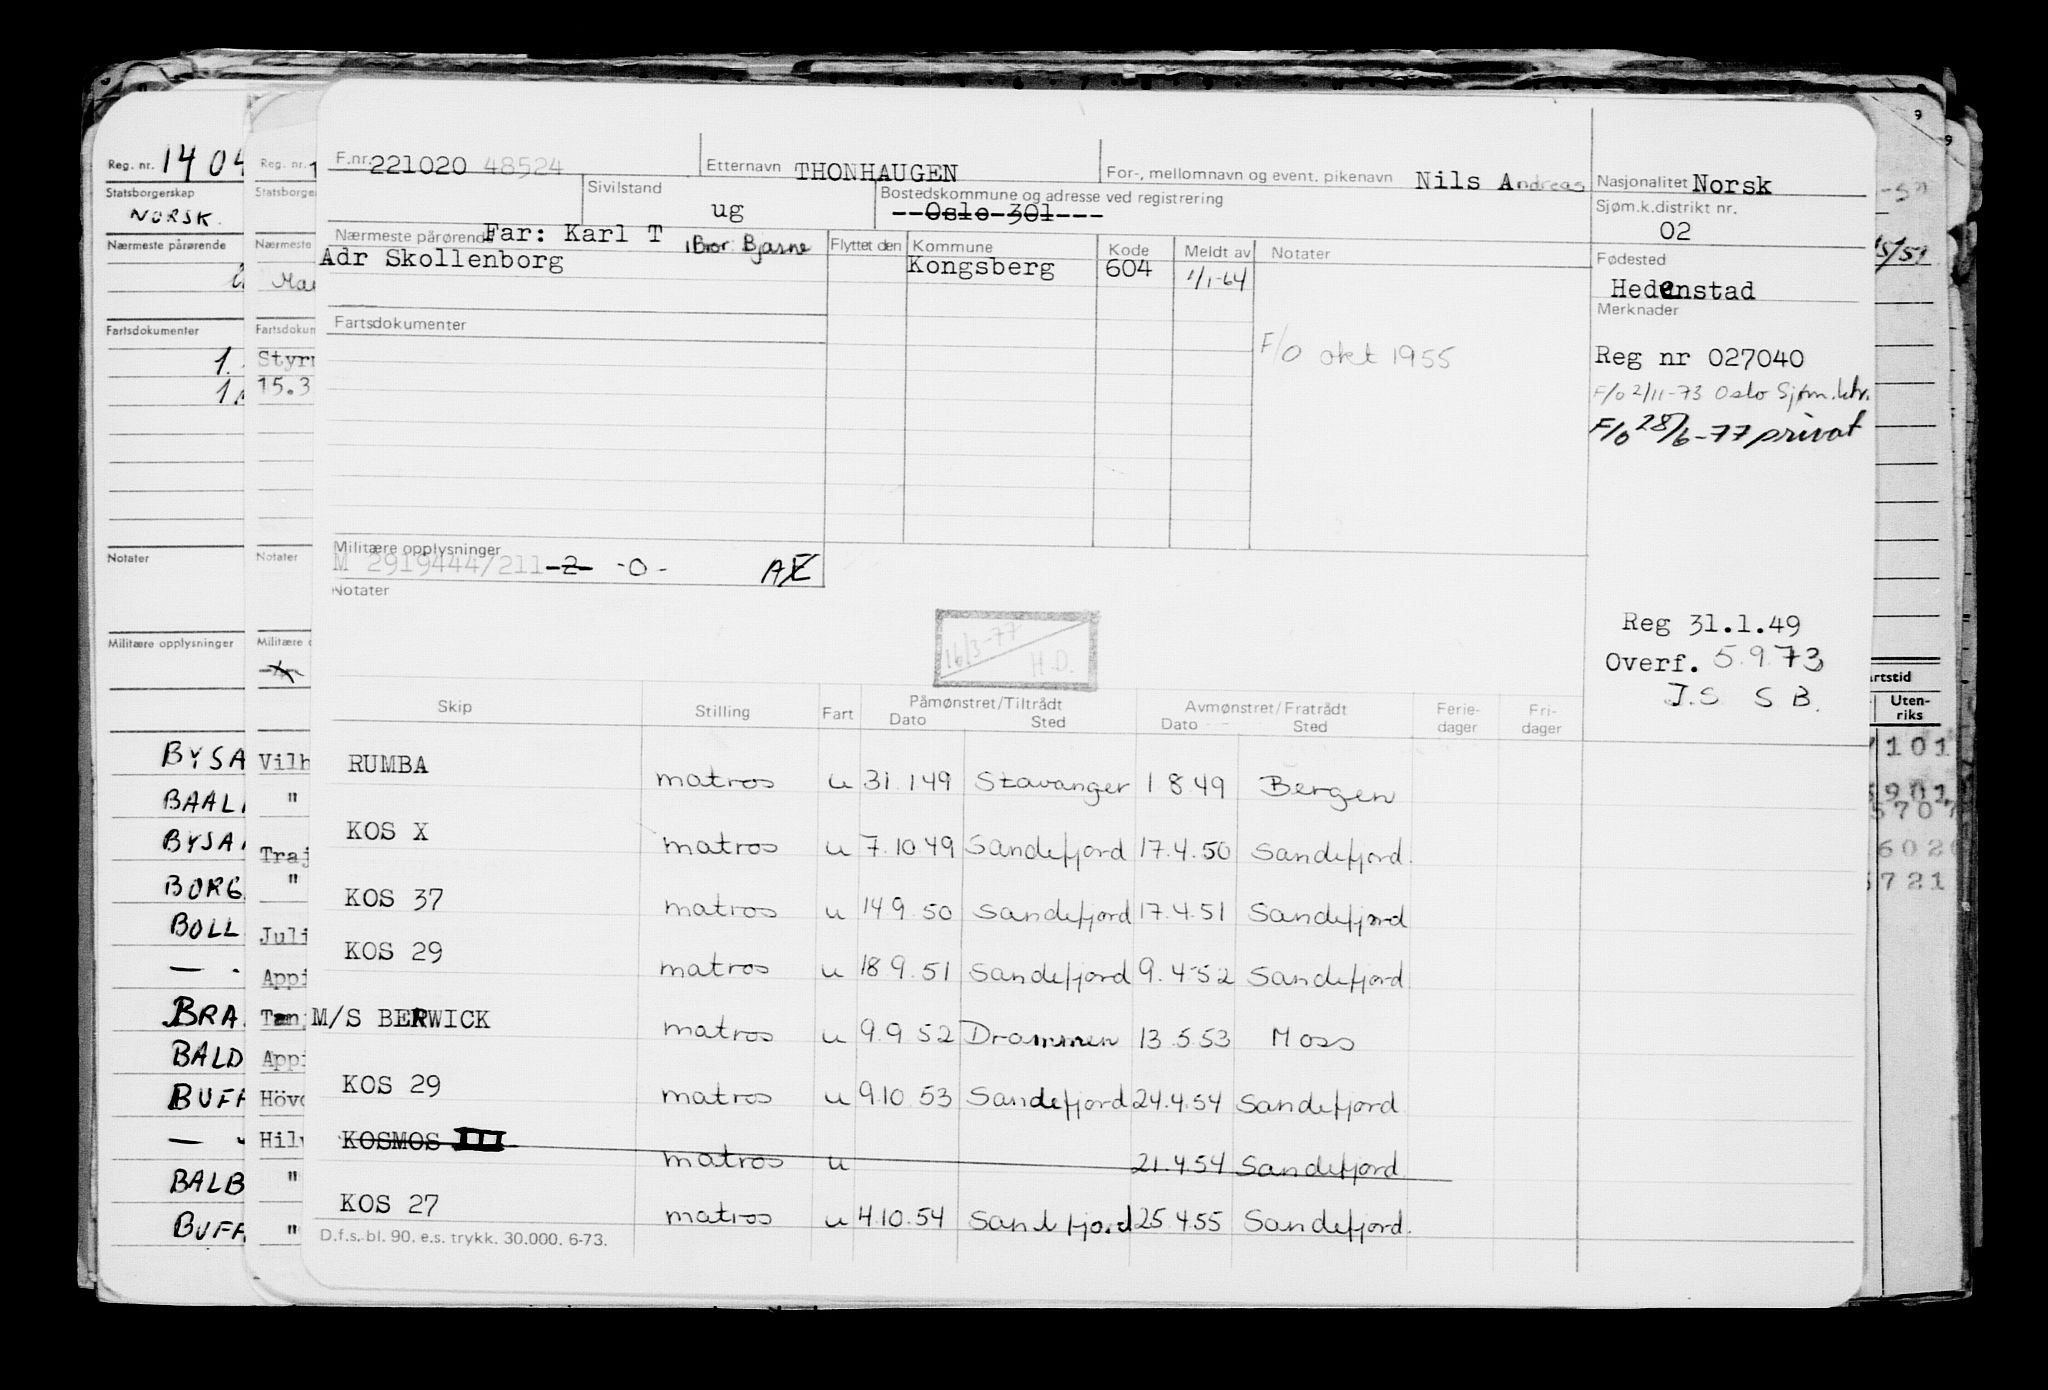 F.nr. 221020 48524 Etternavn THONHAUGEN For-, mellomnavn og event. pikenavn Nils Andreas Nasjonalitet Norsk
Sivilstand ug Bostedskommune og adresse ved registrering --Oslo 301--- Sjøm.k.distrikt nr. 02
Nærmeste pårørende Far: Karl T Bror: Bjarne Flyttet den Kommune Kode Meldt av Notater Fødested
Adr Skollenborg Kongsberg 604 1/1-64 Hedenstad
Merknader
Fartsdokumenter
F/O okt 1955 Reg nr 027040
F/O 2/11-73 Oslo Sjøm.ktr.
F/O 28/6-77 privat
Militære opplysninger
M 2919444/211 -2- -0- AE
Notater
16/3-77 H.D.
Reg 31.1.49
Overf. 5.9.73
J.S. S B.
Skip Stilling Fart Påmønstret/Tiltrådt Avmønstret/Fratrådt Ferie- Fri-
Dato Sted Dato Sted dager dager
RUMBA matros u 31.1 49 Stavanger 1 8.49 Bergen
KOS X matros u 7.10 49 Sandefjord 17.4.50 Sandefjord.
KOS 37 matros u 14 9. 50 Sandefjord 17.4.51 Sandefjord
KOS 29 matros u 18 9.51 Sandefjord 9. 4-52 Sandefjord
M/S BERWICK matros u 9.9 52 Drammen 13.5.53 Moss
KOS 29 matros u 9.10 53 Sandefjord 24.4.54 Sandefjord
KOSMOS III matros u 21.4.54 Sandefjord
KOS 27 matros u 4.10.54 Sandefjord 25 4.55 Sandefjord.
D.f.s. bl. 90. e.s. trykk. 30.000. 6-73.
Reg. nr. 1404
Statsborgerskap
NORSK.
Nærmeste pårørende
Fartsdokumenter
Notater
Militære opplysninger
BYSA
BAAL
BYSA
BORG
BOLL
BRA
BALD
BUFF
BALB
BUFF
Reg. nr.
Statsborge
Nærmeste
Styr
15.3
Notater
Vilh
"
Traj
"
Juli
Appi
Tanj
Appi
Hövd
Hilv
"
"
Uten-
riks